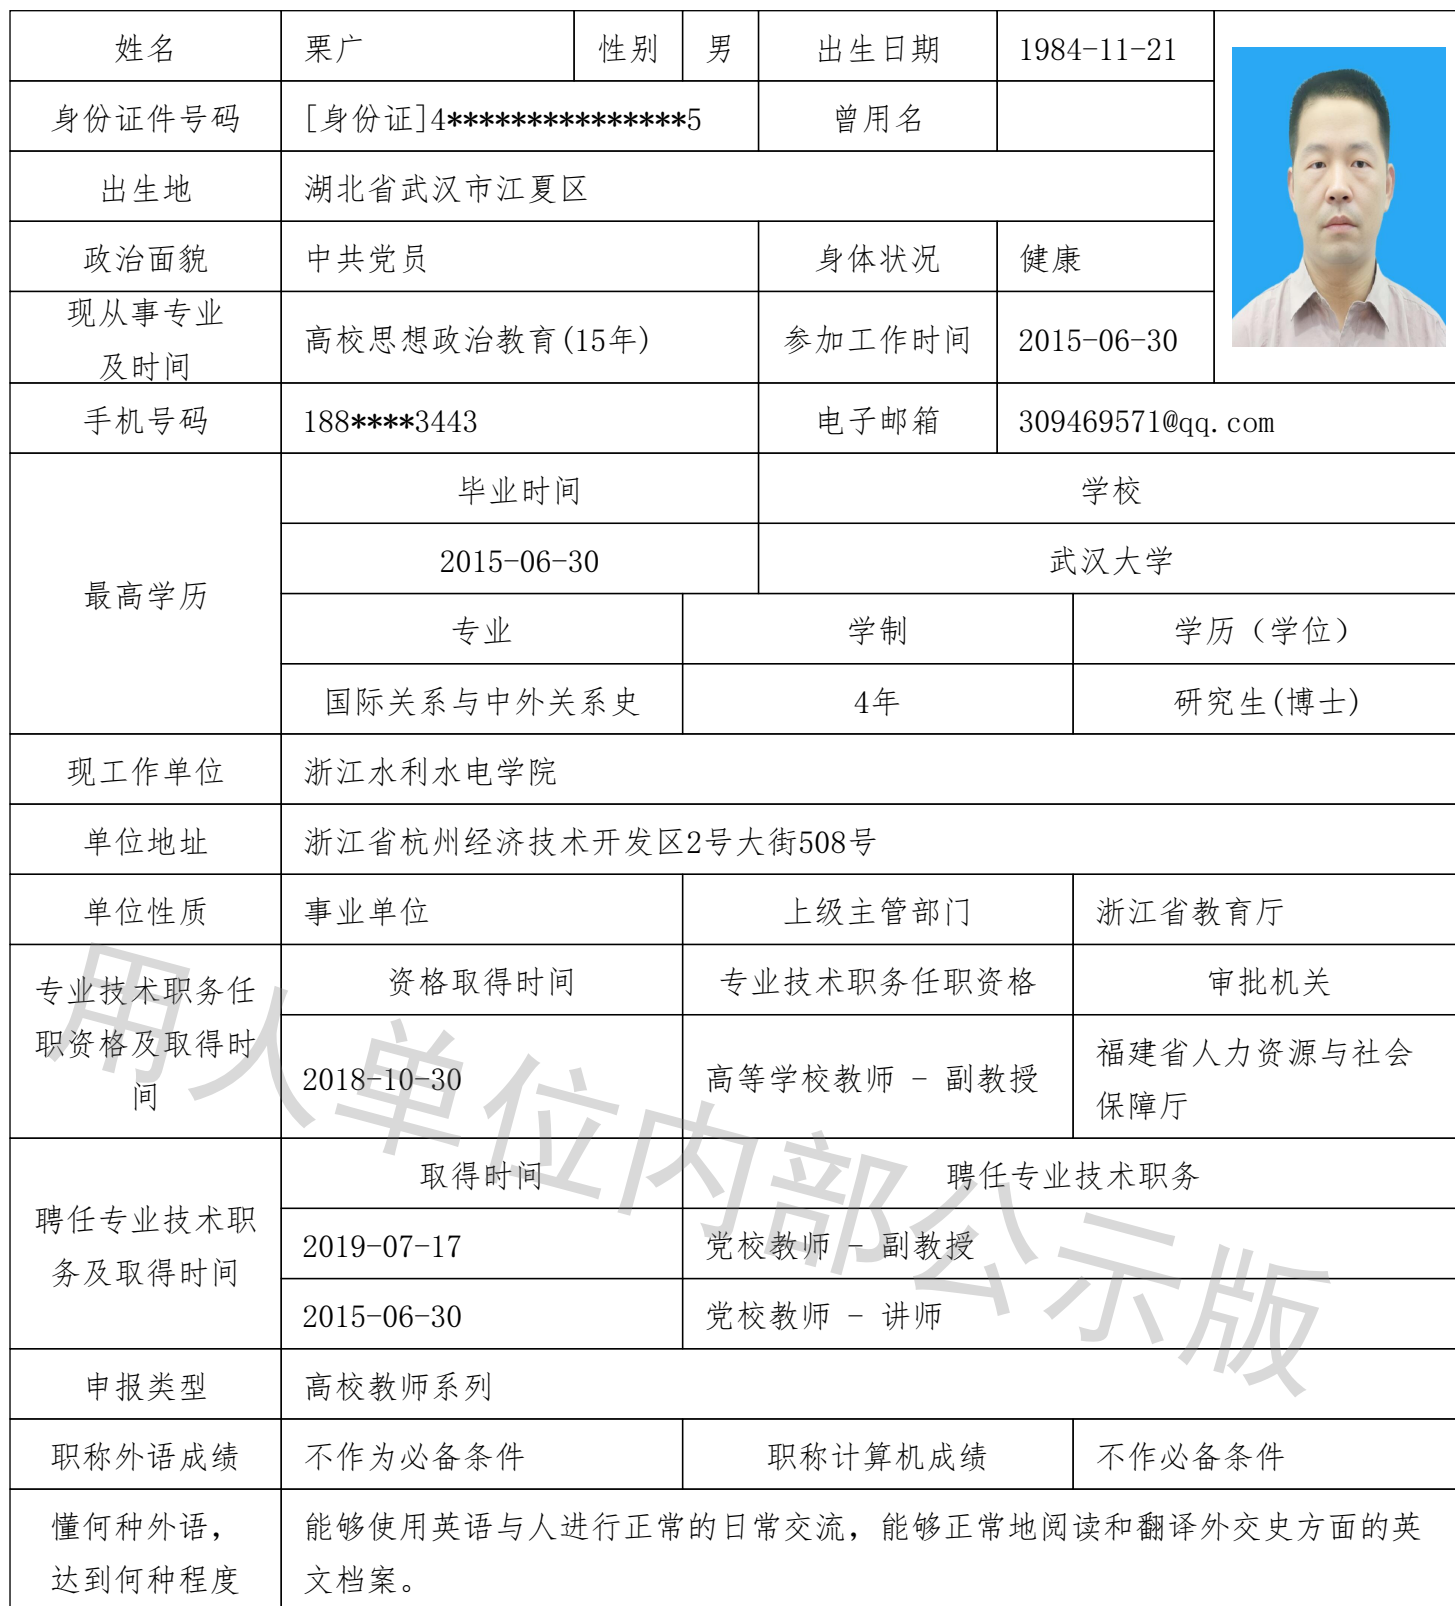 姓名 栗广 性别 男 出生日期 1984-11-21
身份证件号码 [身份证]4***************5 曾用名
出生地 湖北省武汉市江夏区
政治面貌 中共党员 身体状况 健康
现从事专业
及时间 高校思想政治教育(15年) 参加工作时间 2015-06-30
手机号码 188****3443 电子邮箱 309469571@qq.com
最高学历
毕业时间 学校
2015-06-30 武汉大学
专业 学制 学历（学位）
国际关系与中外关系史 4年 研究生(博士)
现工作单位 浙江水利水电学院
单位地址 浙江省杭州经济技术开发区2号大街508号
单位性质 事业单位 上级主管部门 浙江省教育厅
专业技术职务任
职资格及取得时
间
资格取得时间 专业技术职务任职资格 审批机关
2018-10-30 高等学校教师 - 副教授 福建省人力资源与社会
保障厅
聘任专业技术职
务及取得时间
取得时间 聘任专业技术职务
2019-07-17 党校教师 - 副教授
2015-06-30 党校教师 - 讲师
申报类型 高校教师系列
职称外语成绩 不作为必备条件 职称计算机成绩 不作必备条件
懂何种外语，
达到何种程度
能够使用英语与人进行正常的日常交流，能够正常地阅读和翻译外交史方面的英
文档案。
用人单位内部公示版